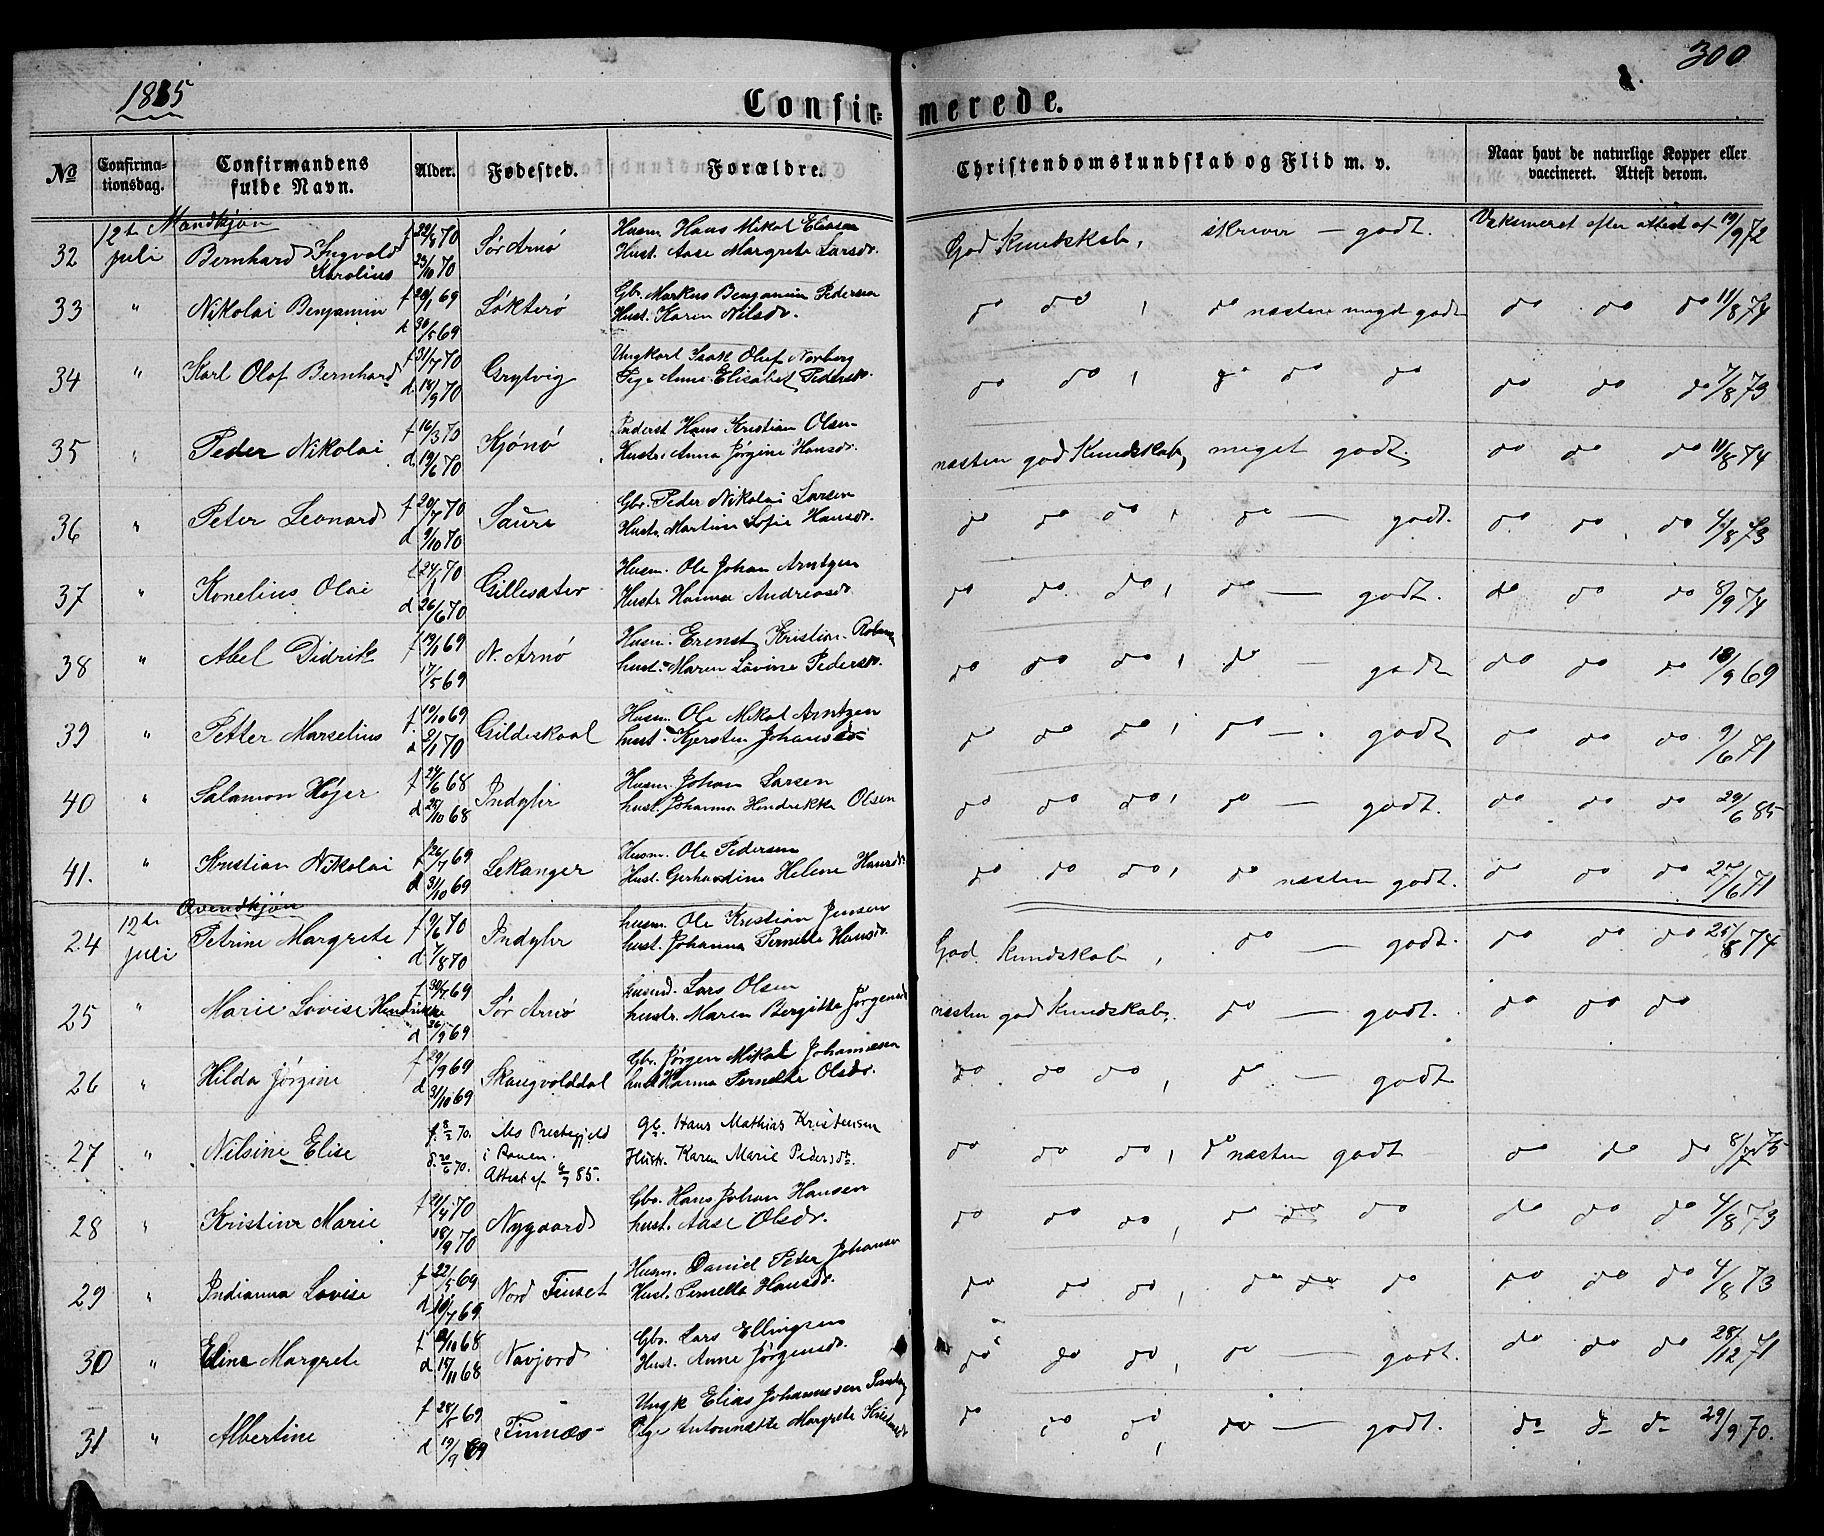 300
1885
Confir=merede.
No
Confirma-
tionsdag.
Confirmandens
fulde Navn.
Alder.
Fødested.
Forældre.
Christendomskundskab og Flid m. v.
Naar havt de naturlige Kopper eller
vaccineret. Attest derom.
12te Mandkjøn
32 juli Bernhard Ingvold Karolius f 22/8 70 d 23/10 70 Sør Arnø Husm Hans Mikal Eliasen Hust. Aase Margrete Larsdr. God Kundskab, skriver — godt. Vaksineret efter attest af 19/9 72
33 " Nikolai Benjamin f 28/1 69 d 30/5 69 Løkterø Gb. Markus Benjamin Pedersen Hust. Karen Nilsdr. do do, do næsten meget godt do do do 11/8 74
34 " Karl Olof Bernhard f 31/7 70 d 18/9 70 Grytvig Ungkarl Isak Oluf Norberg Pige Anne Elisabet Pedersdr. do do, do do do do do do 7/8 73
35 " Peder Nikolai f 16/3 70 d 19/6 70 Kjønø Inderst Hans Kristian Olsen Hustr. Anna Jørgine Hansdr. næsten god Kundskab, meget godt. do do do 11/8 74
36 " Peter Leonard f 20/7 70 d 9/10 70 Saura Gbr. Peder Nikolai Larsen Hustr. Martine Sofie Hansdr. do do do, do — godt. do do. do 4/8 73
37 " Konelius Olai f 24/1 70 d 26/6 70 Gillesæter Husm. Ole Johan Arntzen Hustr Hanna Andreasdr. do do do, do — godt. do do do 8/9 74
38 " Abel Didrik f 19/1 69 17/5 69 N. Arnø Husm. Erenst Kristian hust. Maren Lovine Pedersdr. do do do, do — godt do do do 18/9 69
39 " Petter Marselius f. 19/10 69 d 2/1 70 Gildeskaal Husm. Ole Mikal Arntzen hust. Kjersten Johansdr. do do do, do — . godt do do do 9/6 71
40 " Salamon Højer f 24/6 68 d 25/10 68 Indyhr Husm. Johan Larsen hust. Johanna Hendrikke Olsen do do do, do — godt. do do do 29/6 85
41. " Kristian Nikolai f 26/7 69 d 31/10 69 Lekanger Husm. Ole Pedersen Hust. Gerhardine Helene Hansdr. do do do, do næsten godt. do do do 27/6 71
Qvendkjøn
24 12te juli Petrine Margrete f 9/6 70 d 7/8 70 Indyhr husm. Ole Kristian Jensen hust. Johanna Pernelle Hansdr. God Kundskab, do — godt. do do do 25/8 74
25 " Marie Lovise Hendrikke f 30/7 69 d 26/9 69 Sør Arnø Lars Olsen hustr. Maren Bergitte Jørgensdr næsten god Kundskab, do — godt. do do do
26 " Hilda Jørgine f 29/9 69 d 31/10 69 Skaugvolddal Gbr. Jørgen Mikal Johannesen hust Hanna Pernelle Olsdr. do. do do, do — godt
27 " Nilsine Elise f. 8/2 70. d. 20/6 70. Mo Prestegjeld i Ranen. Attest af 6/7 85. Gb. Hans Mathias Kristensen Hustr. Karen Marie Pedersdtr. do do do, do næsten godt do do do 8/7 75
28 " Kristine Marie f 21/4 70 18/9 70 Nygaard Gbr. Hans Johan Hansen hust. Aase Olsdr. do do do, do do do do do do 4/8 73
29 " Indianna Lovise f 22/5 69 d 19/7 69 Nord Finset Husm. Daniel Peter Johansen Hust. Pernella Hansdr. do do do, do do do do do do 4/8 73
30 " Eline Margrete f 2/10 68 d 15/11 68 Navjord Gbr. Lars Ellingsen Hust. Anne Jørgensdr. do do do, do — godt. do do do 28/12 71
31 " Albertine f 28/5 69 d 19/9 69 Finnæs Ungk Elias Johannesen Pige Antonnette Margrete do do do, do — godt. do do do 29/9 70.